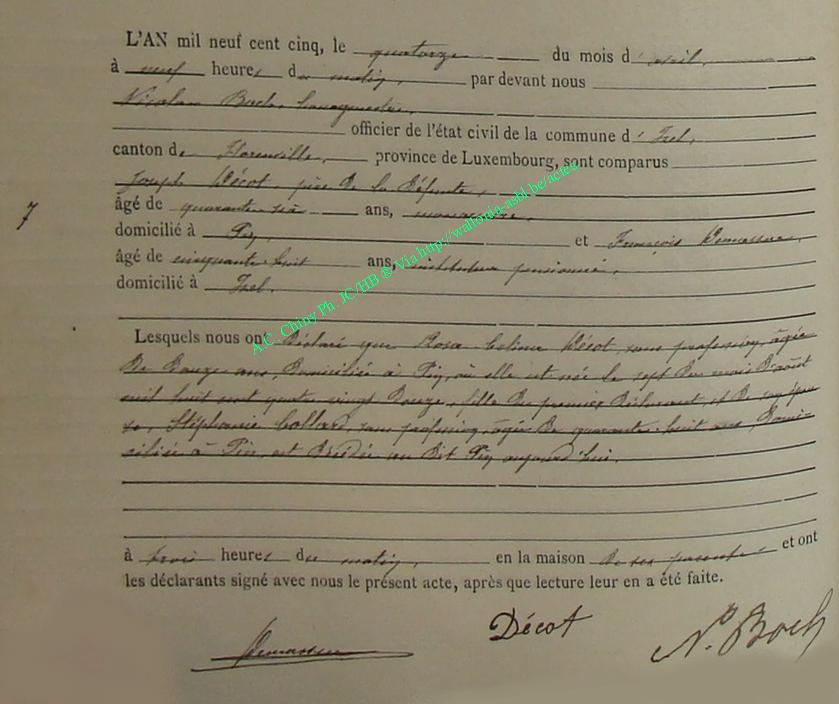 L'AN mil neuf cent cinq, le quatorze du mois d' avril,
à neuf heures du matin, par devant nous
Nicolas Boch, bourgmestre,
officier de l'état civil de la commune d' Izel,
canton de Florenville, province de Luxembourg, sont comparus
Joseph Décot, père de la défunte,
âgé de quarante six ans,
domicilié à Pin, et François
âgé de cinquante huit ans, instituteur pensionné,
domicilié à Izel.
7
Lesquels nous ont déclaré que Rosa Celina Décot, sans profession, âgée
de douze ans, domiciliée à Pin, où elle est née le sept du mois d'août
mil huit cent quatre vingt douze, fille du premier déclarant, et de son épou
se, Stéphanie Collard, sans profession, âgée de quarante huit ans, domi-
ciliée à Pin, est décédée au dit Pin aujourd'hui,
à trois heures du matin, en la maison de ses parents et ont
les déclarants signé avec nous le présent acte, après que lecture leur en a été faite.
Décot N. Boch
A.C. Chiny Ph. JC/HB ® Via http://wallonia-asbl.be/actes